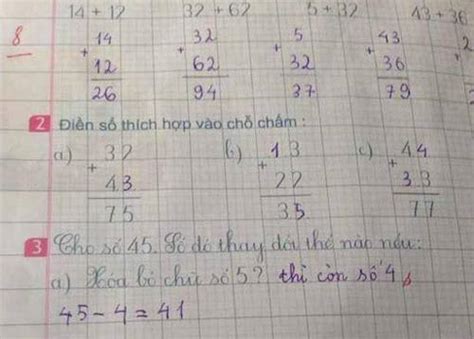 14 + 12 32 + 62 5 + 32 43 + 36
8 14 32 5 43 2
+ + + + +
12 62 32 36
26 94 37 79
2 Điền số thích hợp vào chỗ chấm :
a) 32 b) 13 c) 44
+ + +
43 22 33
75 35 77
3 Cho số 45. Số đó thay đổi thế nào nếu:
a) Xóa bỏ chữ số 5? thì còn số 4
45 - 4 = 41